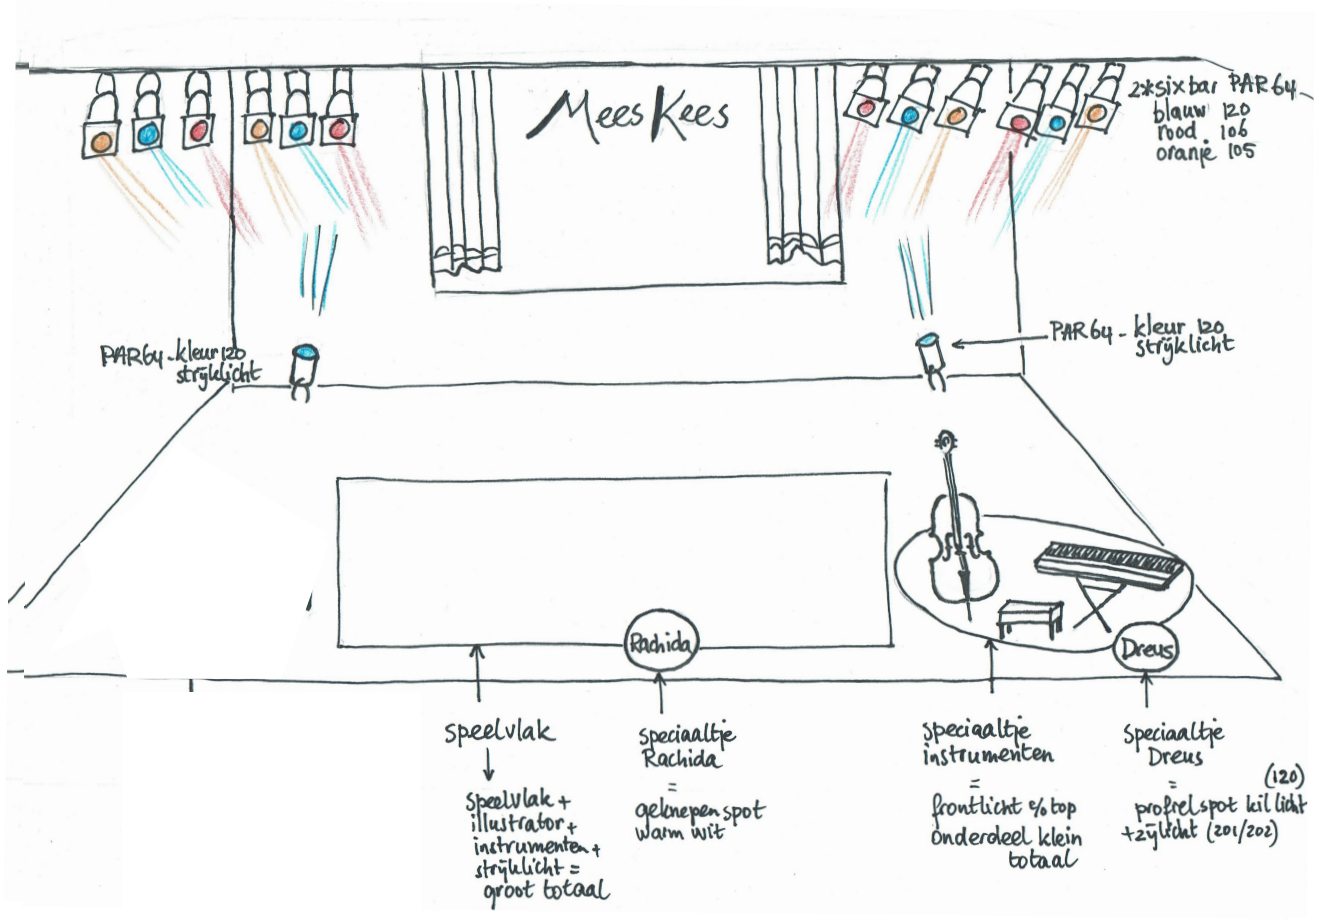 Mees Kees
2*sixbar PAR64
blauw 120
rood 106
oranje 105
PAR64-kleur 120
strijklicht
PAR64-kleur 120
strijklicht
Rachida
Dreus
speelvlak
speelvlak +
illustrator +
instrumenten +
strijklicht =
groot totaal
speciaaltje
Rachida
=
geknepen spot
warm wit
speciaaltje
instrumenten
=
frontlicht %top
onderdeel klein
totaal
speciaaltje
Dreus
= (120)
profielspot kil licht
+zijlicht (201/202)